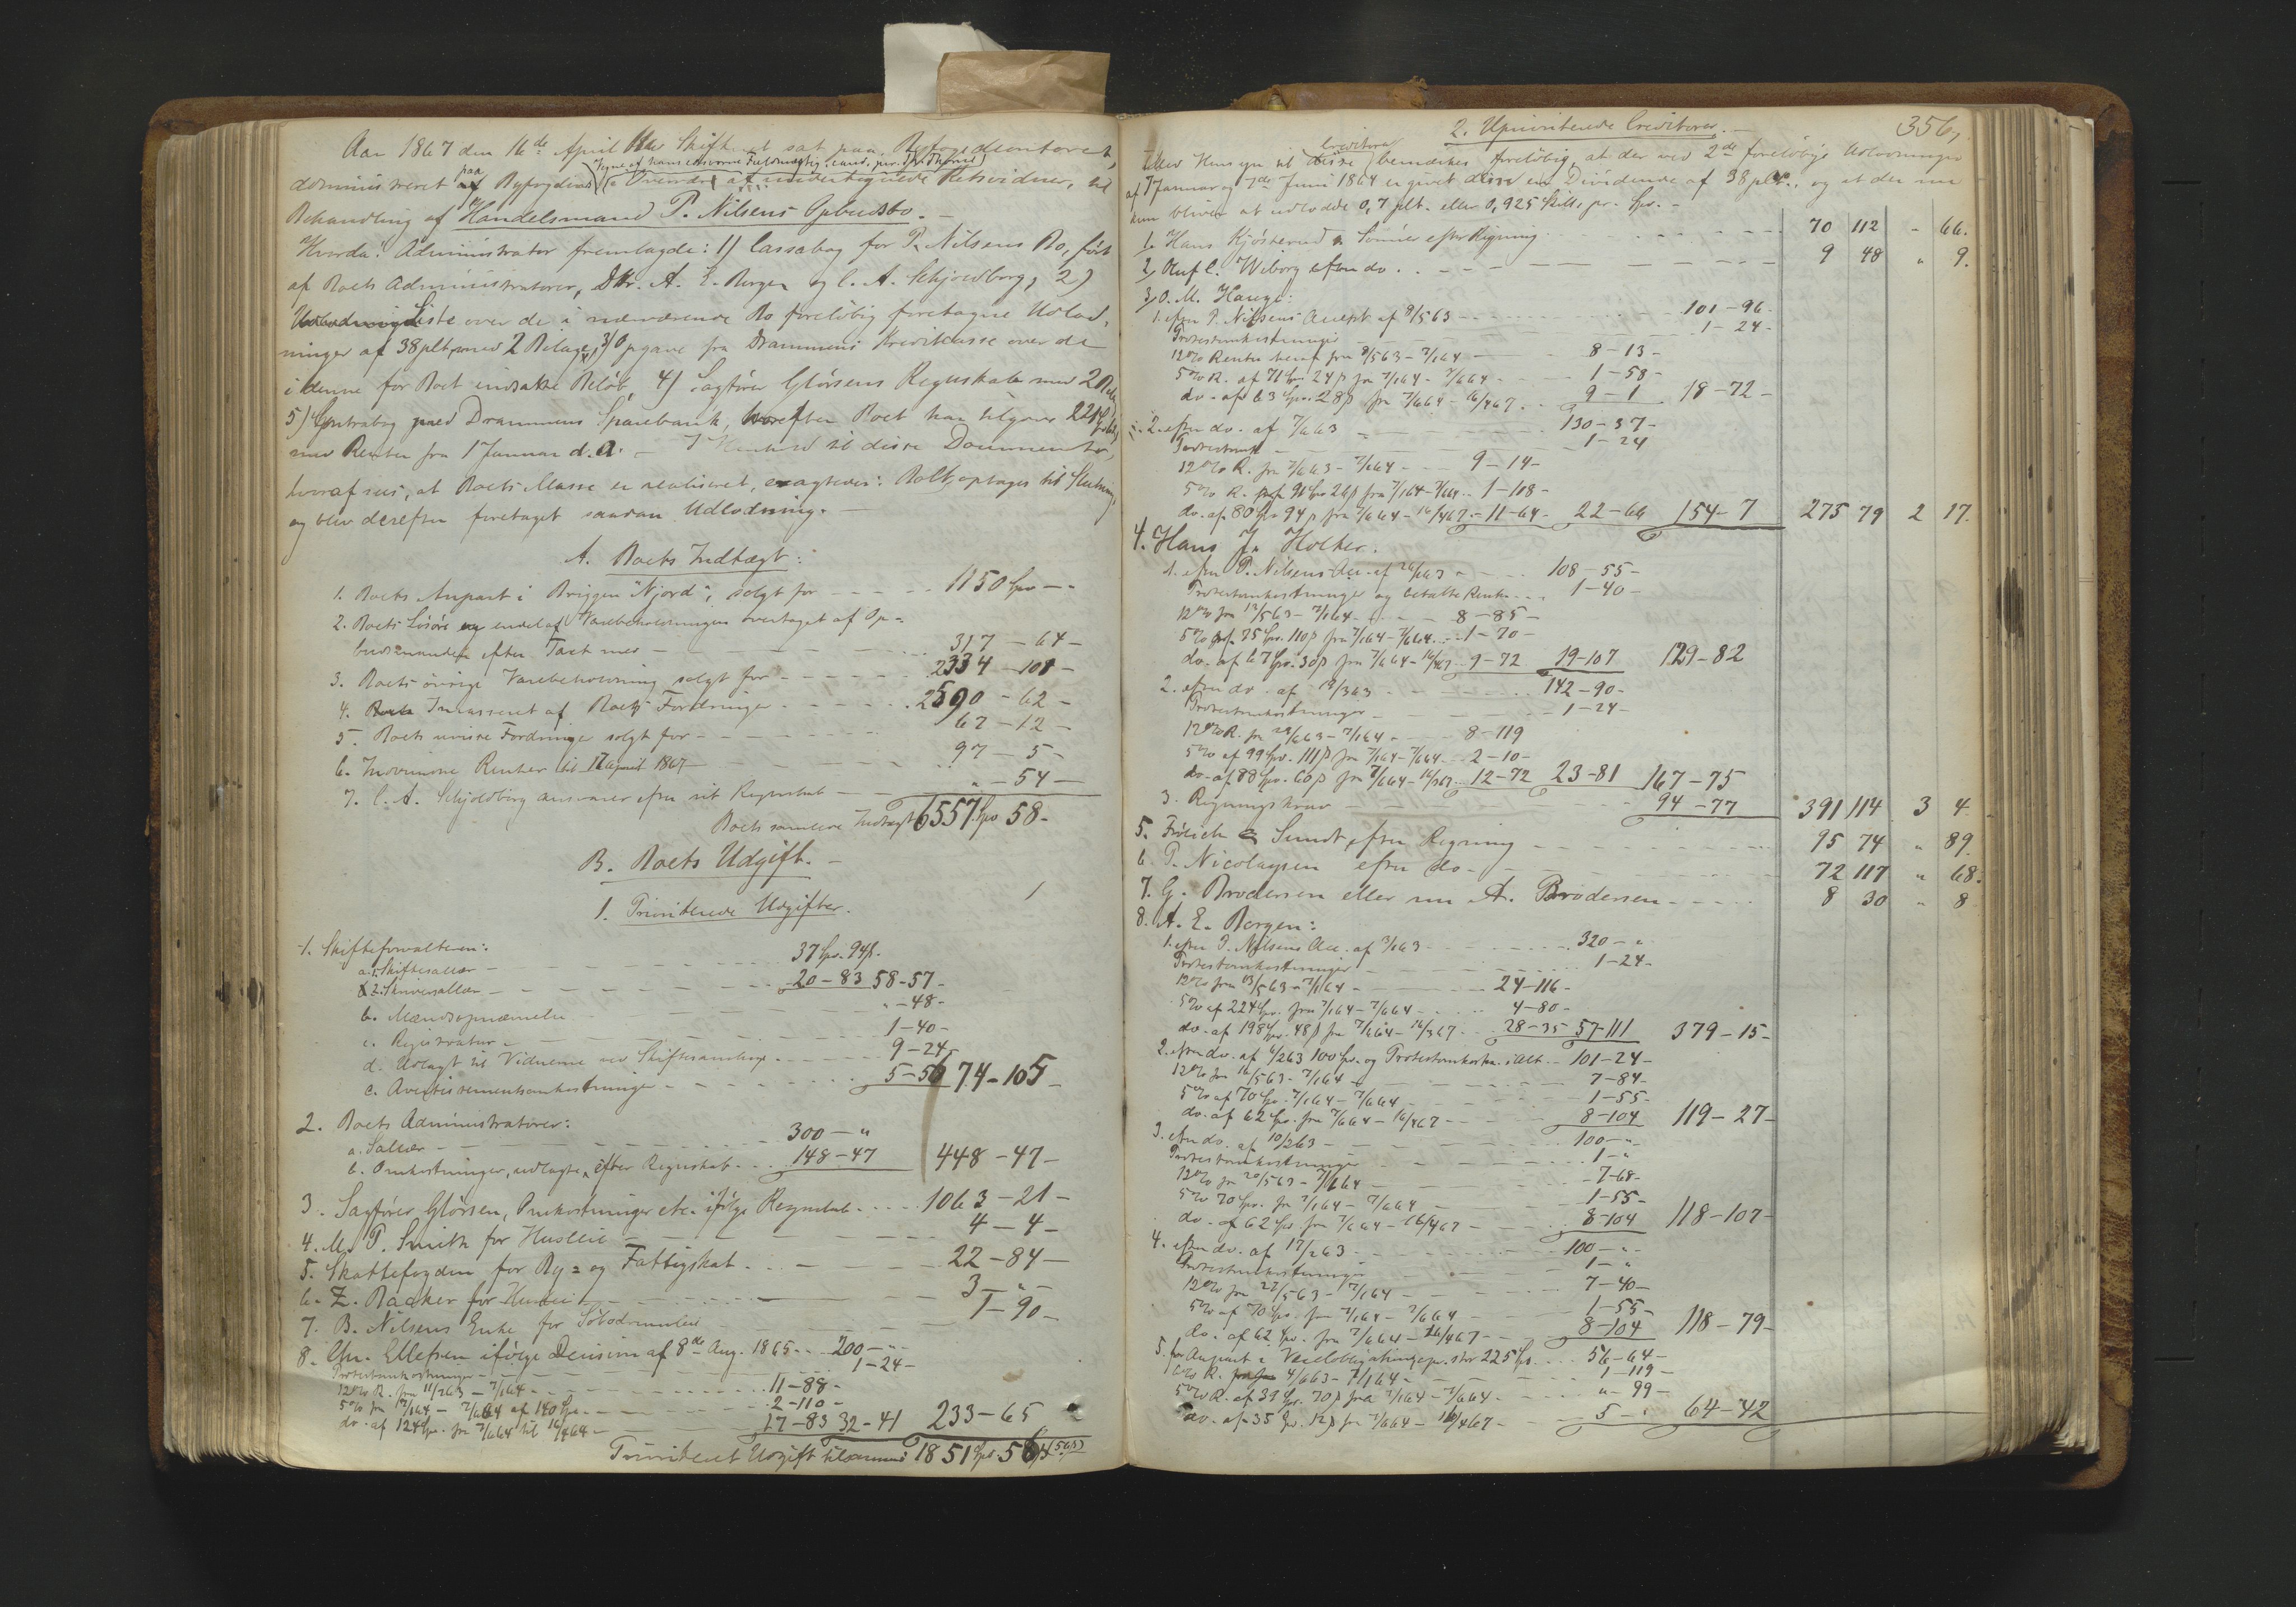 Aar 1867 den 16de April blev Skifteret sat paa Byfogedcontoret,
administreret paa Byfogdens Vegne af hans edsvorne Fuldmægtig, cand. jur. Thorne
Overværelse af undertegnede Retsvidner, til
Behandling af Handelsmand P. Nilsens Opbudsbo. -
Hvorda: Administrator fremlagde: 1) Cassabog for P. Nilsens Bo, ført
af Boets Administratorer, DHr. A. E. Borgen og C. A. Schjoldborg, 2)
Liste over de i nærværende Bo foreløbig foretagne Udlod-
ninger af 38 pCt. med 2 Bilage, 3) Opgave fra Drammens Kreditcasse over de
i denne for Boet indsatte Beløb, 4) Sagfører Glørsens Regnskab med 2 Bilag
5) Contrabog med Drammens Sparebank, hvorefter Boet har tilgode 221 Spd.
med Renter fra 1 Januar d. A. - I Henhold til disse Documenter,
hvoraf sees, at Boets Masse er realiseret, eragtedes: Boet optages til Slutning,
og blev derefter foretaget saadan Udlodning. -
A. Boets Indtægt:
1. Boets Anpart i Briggen "Njord", solgt for - - - 1150 Spd - "
2. Boets Løsøre og endel af Varebeholdningen overtaget af Op-
budsmanden efter Taxt med - 317 - 64 -
3. Boets øvrige Varebeholdning solgt for - - - 2334 - 101 -
4. Incasseret af Boets Fordringer - - - 2590 - 62 -
5. Boets uvisse Fordringer solgt for - - - 67 - 12 -
6. Indvundne Renter til 17 April 1867 - 97 - 5 -
7. C. A. Schjoldborg ansvarer efter sit Regnskab - " - 54 -
Boets samlede Indtægt 6557 Spd 58 -
B. Boets Udgift. -
1. Prioriterede Udgifter.
1. Skifteforvalteren:
a. 1. Skiftesallær - 37 Spd. 94 ß.
2. Skriversallær - 20 - 83 58 - 57 -
b. Mændsopnævnelse " - 48 -
c. Registratur - 1 - 40 -
d. Udlagt til Vidnerne ved Skiftesamlinger - 9 - 24 -
e. Avertissementsomkostninger - 5 - 56 74 - 105 -
2. Boets Administratorer:
a. Salær - 300 - "
b. Omkostninger, udlagte, efter Regnskab - 148 - 47 448 - 47 -
3. Sagfører Glørsen, Omkostninger etc. ifølge Regnskab - 1063 - 21 -
4. M. P. Smith for Husleie - 4 - 4 -
5. Skattefogden for By- og Fattigskat - 22 - 84 -
6. Z. Backer for Husleie - 3 - " -
7. B. Nilsens Enke for Søbodrumsleie 1 - 90 -
8. Chr. Ellefsen ifølge Decision af 8de Aug. 1865 - 200 - "
Protestomkostninger - 1 - 24 -
12% R. fra 11/263 - 7/164 - 11 - 88 -
5% fra 7/164 - 7/664 af 140 Spd. - 2 - 110 -
do. af 124 Spd. fra 7/664 til 16/467 - 17 - 83 32 - 41 233 - 65
Prioriteret Udgift tilsammen 1851 Spd. 56 ß
356,
2. Uprioriterede Creditorer. -
Med Hensyn til disse Creditorer bemærkes foreløbig, at der ved 2de foreløbige Udlodninger
af 7 Januar og 7de Juni 1864 er givet disse en Dividende af 38 pCt., og at der nu
kun bliver at udlodde 0,7 pCt. eller 0,925 Skill. pr. Spd. -
1. Hans Kjøsterud & Sønner efter Regning - 70 112 " 66.
2, Oluf C. Wiborg efter do. - 9 48 " 9.
3, O. M. Hauge:
1. efter P. Nilsens Accept af 8/563 - 101 - 96 -
Protestomkostninger 1 - 24 -
12% Renter heraf fra 8/563 - 7/164 - 8 - 13 -
5% R. af 71 Spd. 24 ß fra 7/164 - 7/664 - 1 - 58 -
do. af 63 Spd. 28 ß fra 7/664 - 16/467 - 9 - 1 18 - 72 -
2. efter do. af 7/663 - 130 - 37 -
Protestomk. 1 - 24
12% R. fra 7/663 - 7/164 - 9 - 14 -
5% R. af 91 Spd 26 ß fra 7/164 - 7/664 - 1 - 108 -
do. af 80 Spd 94 ß fra 7/664 - 16/467 - 11 - 64 - 22 - 66 154 - 7 275 79 2 17.
4. Hans J. Holter.
1. efter P. Nilsens Acc. af 108 - 55 -
Protestomkostninger og betalte Renter - 1 - 40 -
12% fra 12/563 - 7/164 - 8 - 85 -
5% af 75 Spd. 110 ß fra 7/164 - 7/664 - 1 - 70 -
do. af 67 Spd. 30 ß fra 7/664 - 16/467 - 9 - 72 19 - 107 129 - 82
2. efter do. af 142 - 90 -
Protestomkostninger - 1 - 24 -
12% R. fra 7/164 - 8 - 119
5% af 99 Spd. 111 ß fra 7/164 - 7/664 - 2 - 10 -
do. af 88 Spd. 60 ß fra 7/664 - 16/467 - 12 - 72 23 - 81 167 - 75
3. Regningskrav - 94 - 77 391 114 3 4.
5. Frølich & Sundt, efter Regning - 95 74 " 89.
6. P. Nicolaysen efter do - 72 117 " 68.
7. G. Brodersen eller nu A. Brodersen - 8 30 " 8
8. A. E. Borgen:
1. efter P. Nilsens Acc. af 3/163 - 320 - "
Protestomkostninger - 1 - 24 -
12% fra 13/563 - 7/164 - 24 - 116 -
5% af 224 Spd. fra 7/164 - 7/664 - 4 - 80 -
do. af 198 Spd. 48 ß fra 7/664 - 16/467 - 28 - 35 57 - 111 379 - 15 -
2. efter do. af 6/263 100 Spd. og Protestomkostn. i Alt - 101 - 24 -
12% fra 16/563 - 7/164 - 7 - 84 -
5% af 70 Spd. 7/164 - 7/664 - 1 - 55 -
do. af 62 Spd. fra 7/664 - 16/467 - 8 - 104 119 - 27 -
3. efter do. af 10/263 - 100 - "
Protestomkostninger - 1 - "
12% fra 20/563 - 7/164 - 7 - 68 -
5% 70 Spd. fra 7/164 - 7/664 - 1 - 55 -
do. af 62 Spd. fra 7/664 - 16/467 - 8 - 104 118 - 107 -
4. efter do. af 17/263 - 100 - "
Protestomkostninger 1 - "
12% fra 27/563 - 7/164 - 7 - 40 -
5% af 70 Spd. fra 7/164 - 7/664 - 1 - 55 -
do. af 62 Spd. fra 7/664 - 16/467 - 8 - 104 118 - 79 -
5. for Anpart i Vexelobligation opr. stor 225 Spd. - 56 - 64 -
6% R. 4/663 - 7/164 - 1 - 119 -
5% R. af 39 Spd. 70 ß fra 7/164 - 7/664 - " - 99 -
do. af 35 Spd. 12 ß fra 7/664 - 16/467 - 5 - " 64 - 42